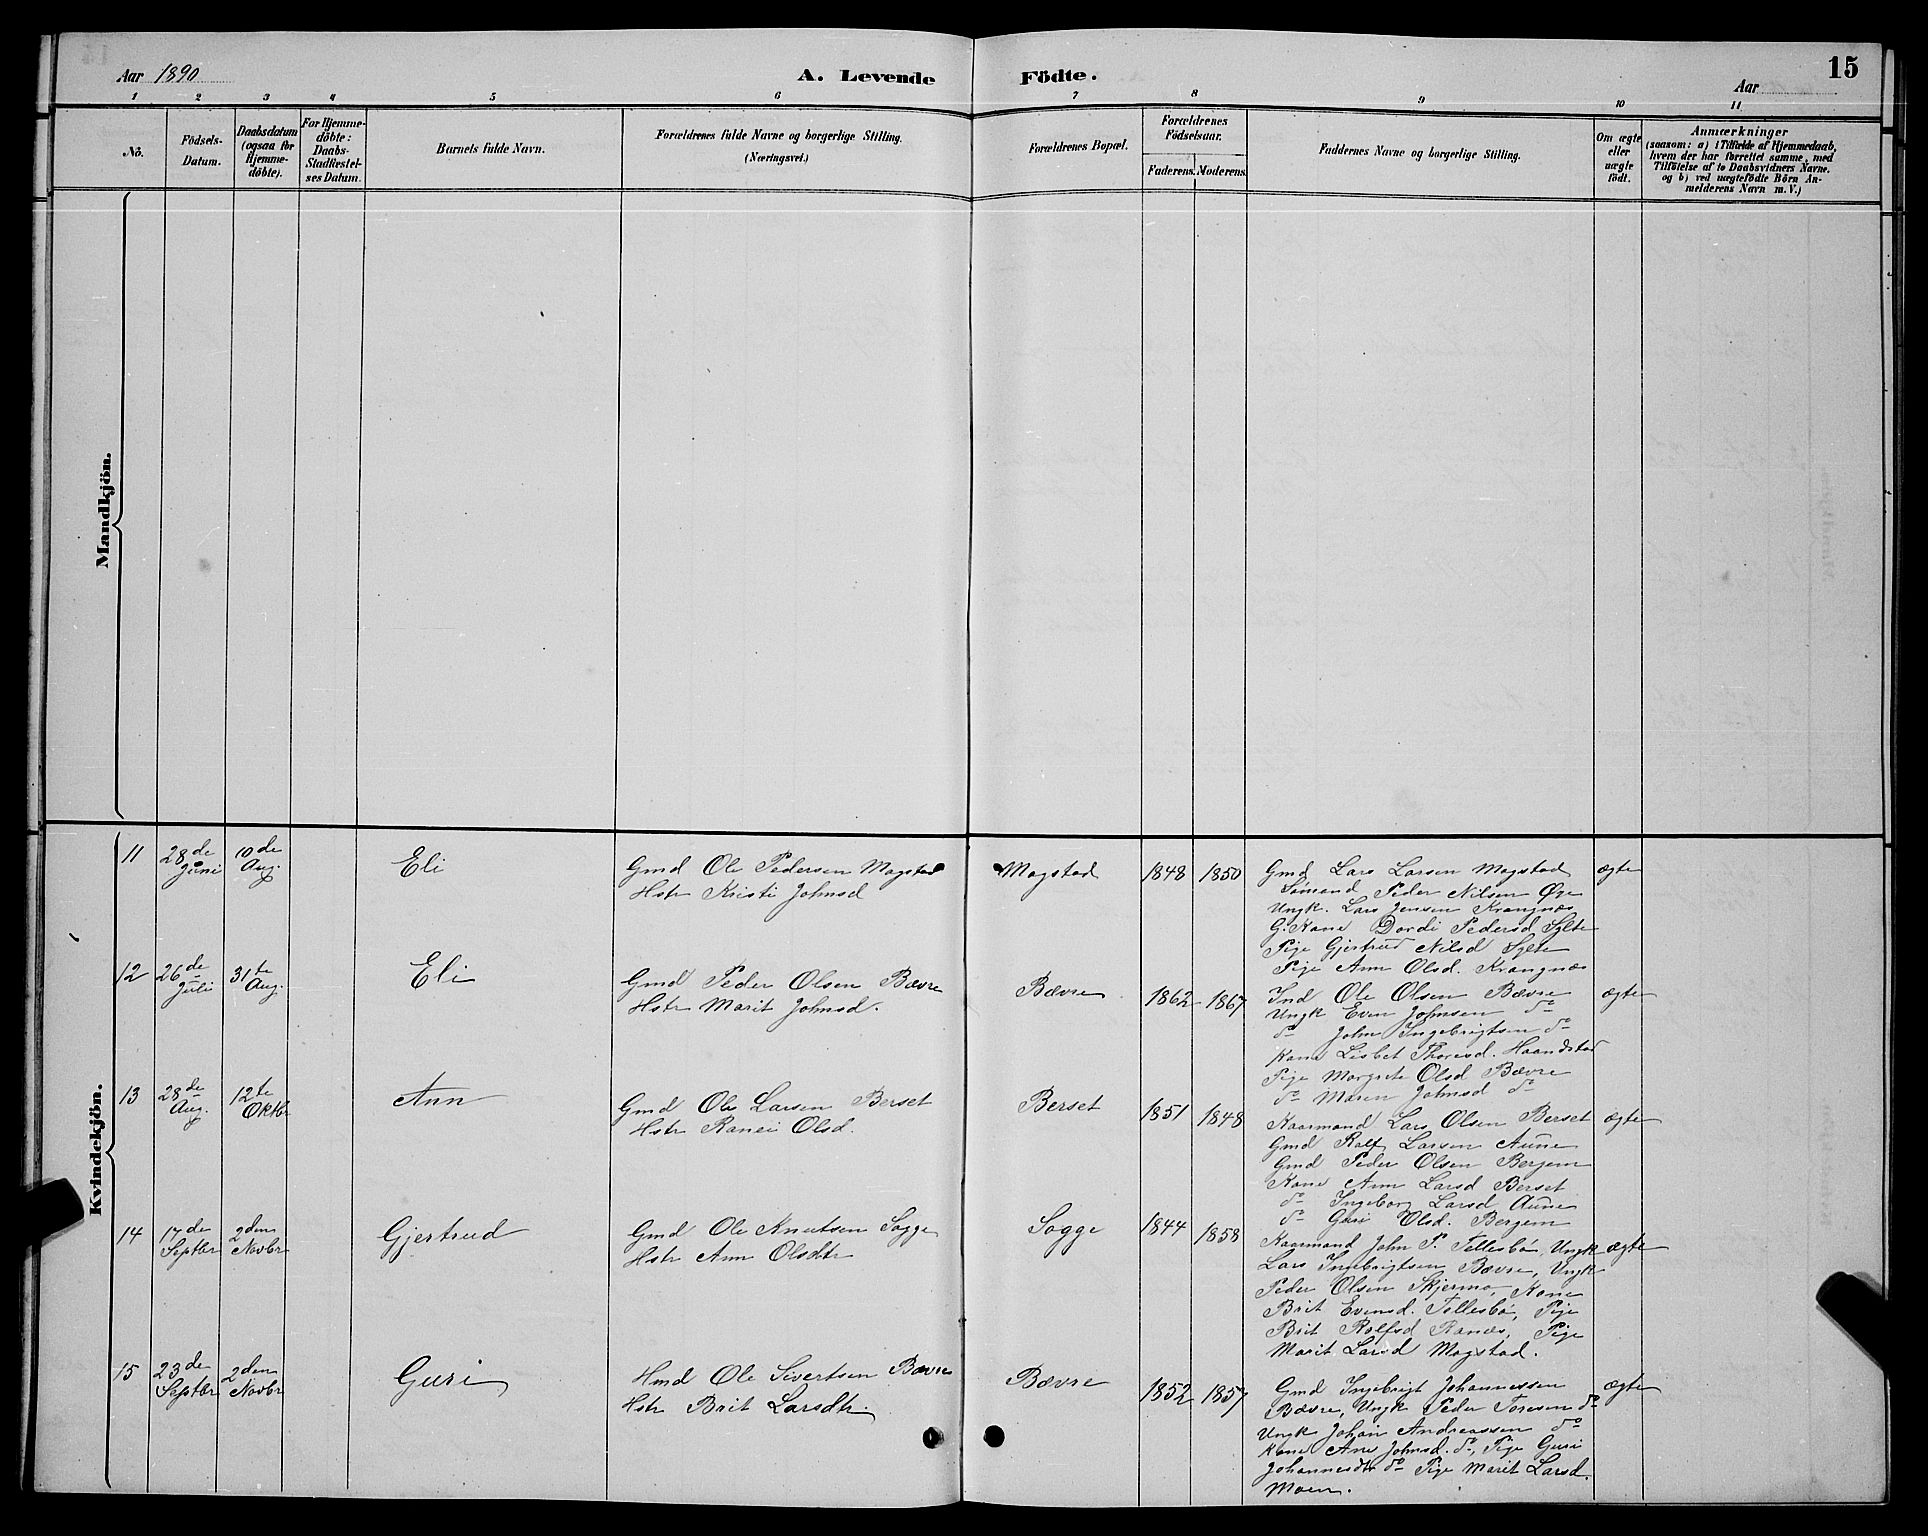 Aar 1890
A. Levende
Födte.
Aar
15
1 2 3 4 5 6 7 8 9 10 11
No.
Födsels-
Datum.
Daabsdatum
(ogsaa for
Hjemme-
döbte).
For Hjemme-
döbte:
Daabs-
Stadfæstel-
ses Datum.
Barnets fulde Navn.
Forældrenes fulde Navne og borgerlige Stilling.
(Næringsvei.)
Forældrenes Bopæl.
Forældrenes
Födselsaar.
Faderens. Moderens.
Faddernes Navne og borgerlige Stilling.
Om ægte
eller
uægte
födt.
Anmærkninger
(saasom: a) i Tilfælde af Hjemmedaab,
hvem der har forrettet samme, med
Tilföielse af to Daabsvidners Navne.
og b) ved uægtefödte Börn An-
melderens Navn m. V.)
Mandkjön.
Kvindekjön.
11 28de Juni 10de Aug. Eli
Gmd Ole Pedersen Magstad
Hstr Kristi Johnsd
Magstad 1848 1850
Gmd Lars Larsen Magstad ægte
Sömand Peder Nilsen Öye
Ungk. Lars Jensen Krangnæs
G. Kone Dordi Pedersd Sylte
Pige Gjertrud Nilsd Sylte
Pige Ann Olsd. Krangnæs
12 26de Juli 31te Aug. Eli
Gmd Peder Olsen Bævre
Hstr Marit Johnsd.
Bævre 1862 1867
Ind Ole Olsen Bævre ægte
Ungk Even Johnsen do
do John Ingebrigtsen do
Kone Lisbet Thoresd. Haandstad
Pige Margrete Olsd Bævre
do Maren Johnsd do
13 28de Aug. 12te Oktbr Ann
Gmd Ole Larsen Berset
Hstr Ranei Olsd.
Berset 1851 1848
Kaarmand Lars Olsen Berset ægte
Gmd Rolf Larsen Aune
Gmd Peder Olsen Bergem
Kone Ann Larsd Berset
do Ingeborg Larsd Aune
do Guri Olsd. Bergem
14 17de Septbr 2den Novbr Gjertrud
Gmd Ole Knutsen Sogge
Hstr Ann Olsdtr
Sogge 1844 1858
Kaarmand John P. Tellesbö, Ungk ægte
Lars Ingebrigtsen Bævre, Ungk
Peder Olsen Skjermo, Kone
Brit Evensd. Tellesbö, Pige
Brit Rolfsd Ranæs, Pige
Marit Larsd Magstad.
15 23de Septbr 2den Novbr Guri
Hmd Ole Sivertsen Bævre
Hstr Brit Larsdtr.
Bævre 1852 1857
Gmd Ingebrigt Johannessen ægte
Bævre, Ungk Peder Toresen do
Ungk Johan Andreassen do
Kone Ane Johnsd. do, Pige Guri
Johannesdtr do Pige Marit Larsd.
Moen.